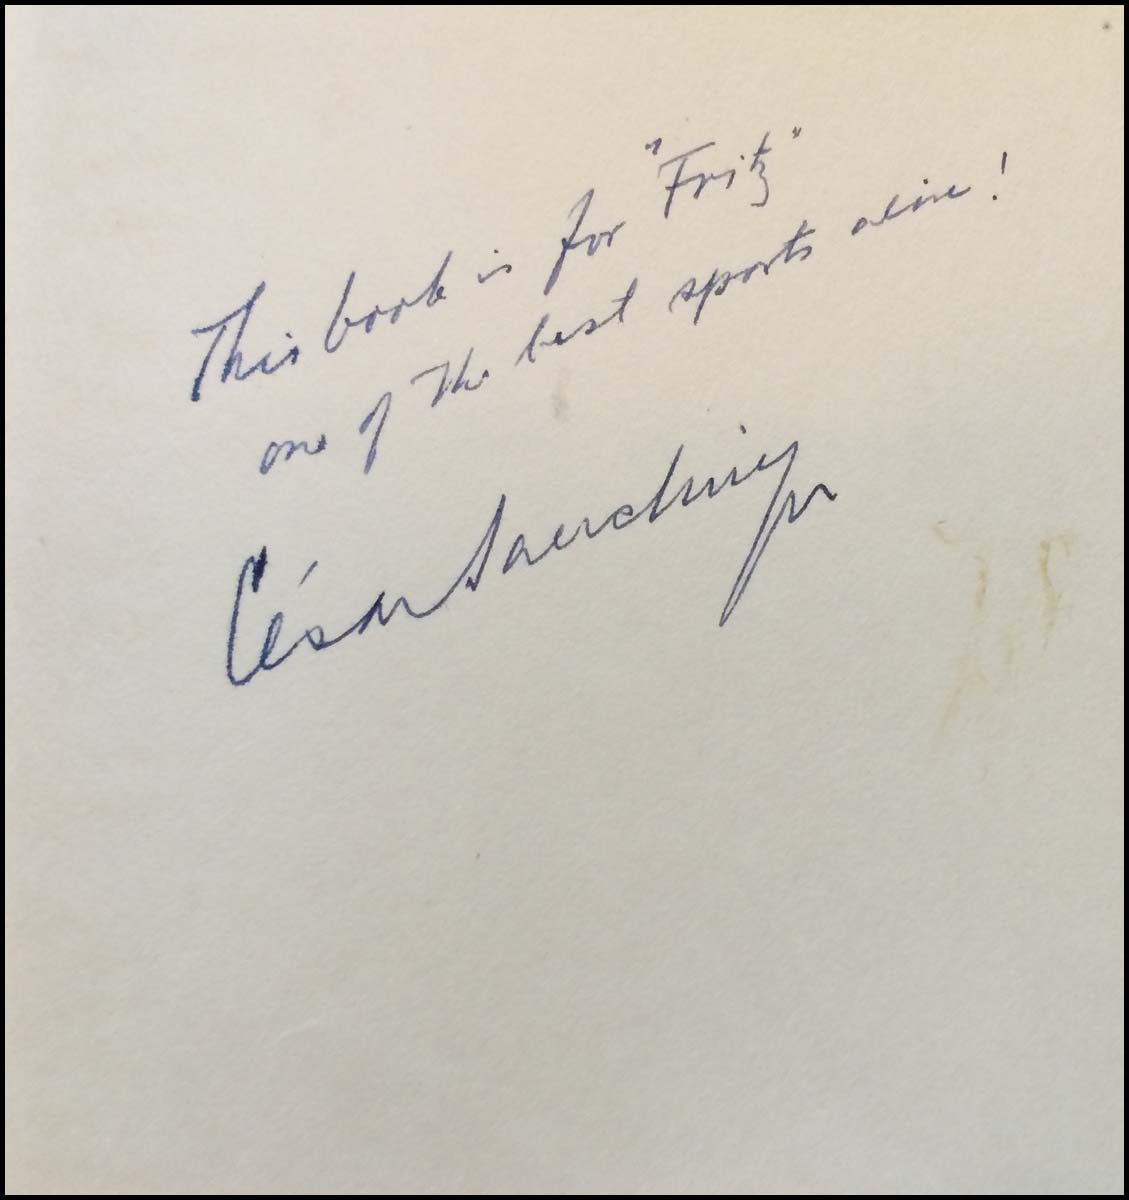 This book is for "Fritz"
one of the best sports alive!
César Saerchinger